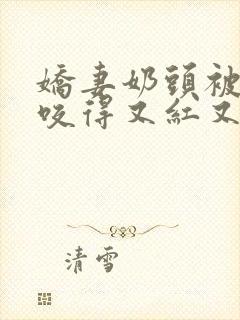 嬌妻奶頭被
咬得又紅又
清雪